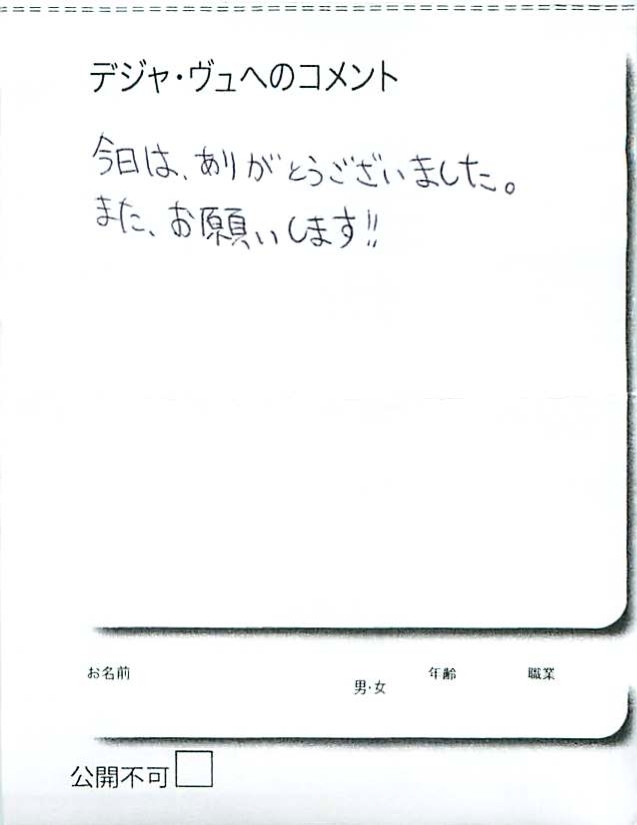 デジャ・ヴュへのコメント
今日は、ありがとうございました。
また、お願いします!!
お名前
男・女
年齢
職業
公開不可